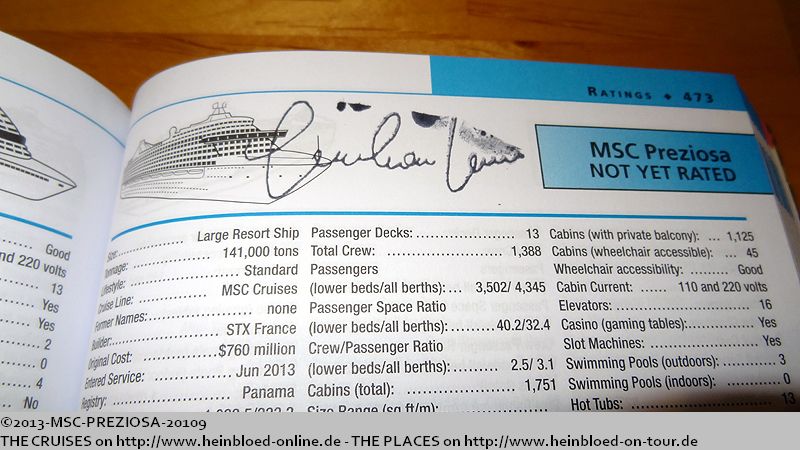 RATINGS ◆ 473
MSC Preziosa
NOT YET RATED
Good
and 220 volts
13
Yes
Yes
2
0
4
No
Size: Large Resort Ship
Tonnage: 141,000 tons
Lifestyle: Standard
Cruise Line: MSC Cruises
Former Names: none
Builder: STX France
Original Cost: $760 million
Entered Service: Jun 2013
Registry: Panama
Passenger Decks: 13
Total Crew: 1,388
Passengers
(lower beds/all berths): 3,502/ 4,345
Passenger Space Ratio
(lower beds/all berths): 40.2/32.4
Crew/Passenger Ratio
(lower beds/all berths): 2.5/ 3.1
Cabins (total): 1,751
Size Range (sq ft/m):
Cabins (with private balcony): 1,125
Cabins (wheelchair accessible): 45
Wheelchair accessibility: Good
Cabin Current: 110 and 220 volts
Elevators: 16
Casino (gaming tables): Yes
Slot Machines: Yes
Swimming Pools (outdoors): 3
Swimming Pools (indoors): 0
Hot Tubs: 13
©2013-MSC-PREZIOSA-20109
THE CRUISES on http://www.heinbloed-online.de - THE PLACES on http://www.heinbloed-on-tour.de